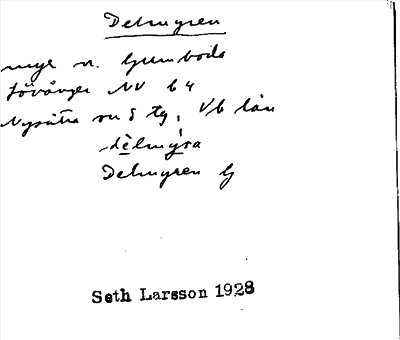 Delmyren
myr n. Gumboda
Lövånger NV b 4
Nysätra sn S tg, Vb län
dèlmýra
Delmyren G
Seth Larsson 1928